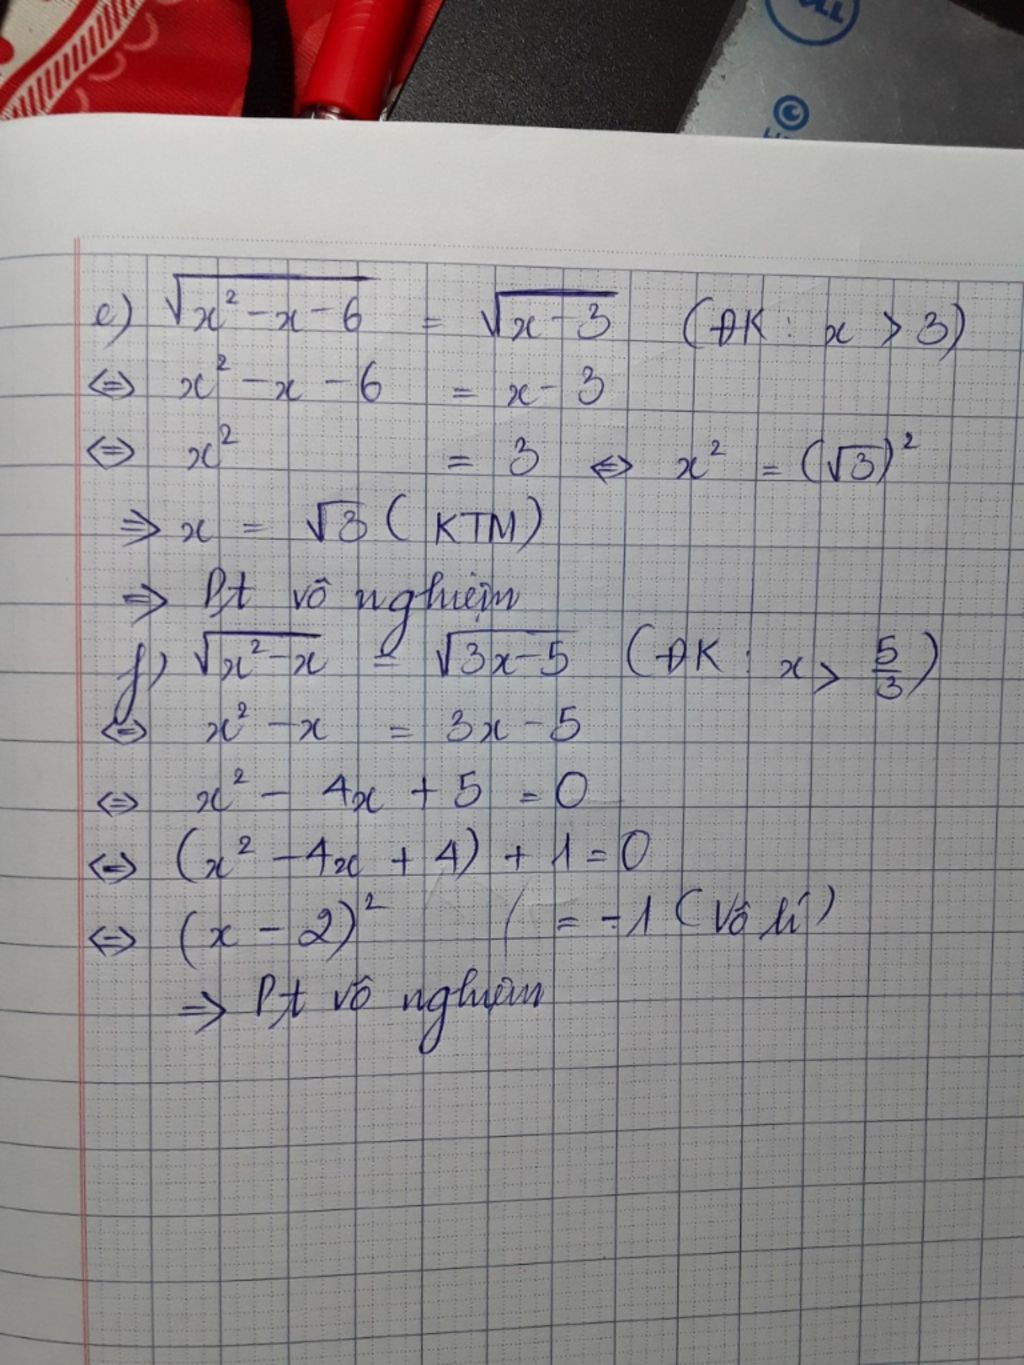 DELL
©
e) √(x² - x - 6) = √(x - 3) (ĐK : x > 3)
⇔ x² - x - 6 = x - 3
⇔ x² = 3 ⇔ x² = (√3)²
⇒ x = √3 (KTM)
⇒ Pt vô nghiệm
f) √(x² - x) = √(3x - 5) (ĐK : x > 5/3)
⇔ x² - x = 3x - 5
⇔ x² - 4x + 5 = 0
⇔ (x² - 4x + 4) + 1 = 0
⇔ (x - 2)² = -1 (Vô lí)
⇒ Pt vô nghiệm